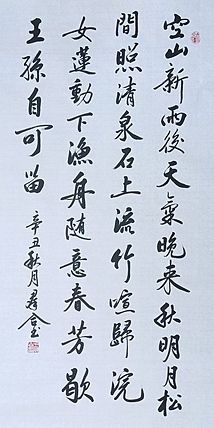 空山新雨後天氣晚来秋明月松
間照清泉石上流竹喧歸浣
女蓮動下漁舟隨意春芳歇
王孫自可留 辛丑秋月